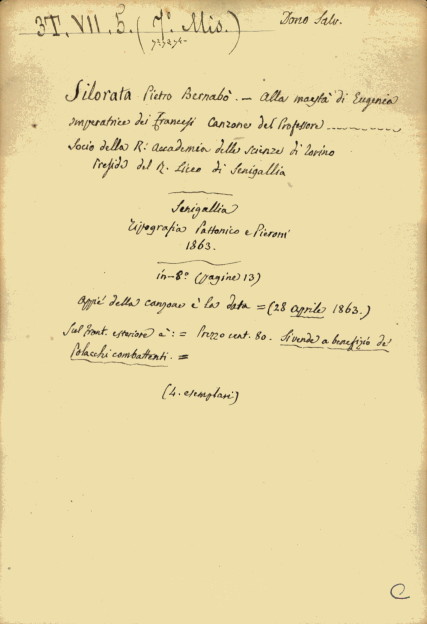 3T. VII. 5. (7.° Mis.)
Dono Salv.
Silorata Pietro Bernabò. — Alla maestà di Eugenia
Imperatrice dei Francesi Canzone del Professore
Socio della R. Accademia delle scienze di Torino
Preside del R. Liceo di Senigallia
Senigallia
Tipografia Pattonico e Pieroni
1863.
in-8.° (pagine 13)
Appiè della canzone è la data = (28 aprile 1863.)
Sul front. esteriore è: = Prezzo cent. 80. Si vende a benefizio de'
Polacchi combattenti. =
(4. esemplari)
C